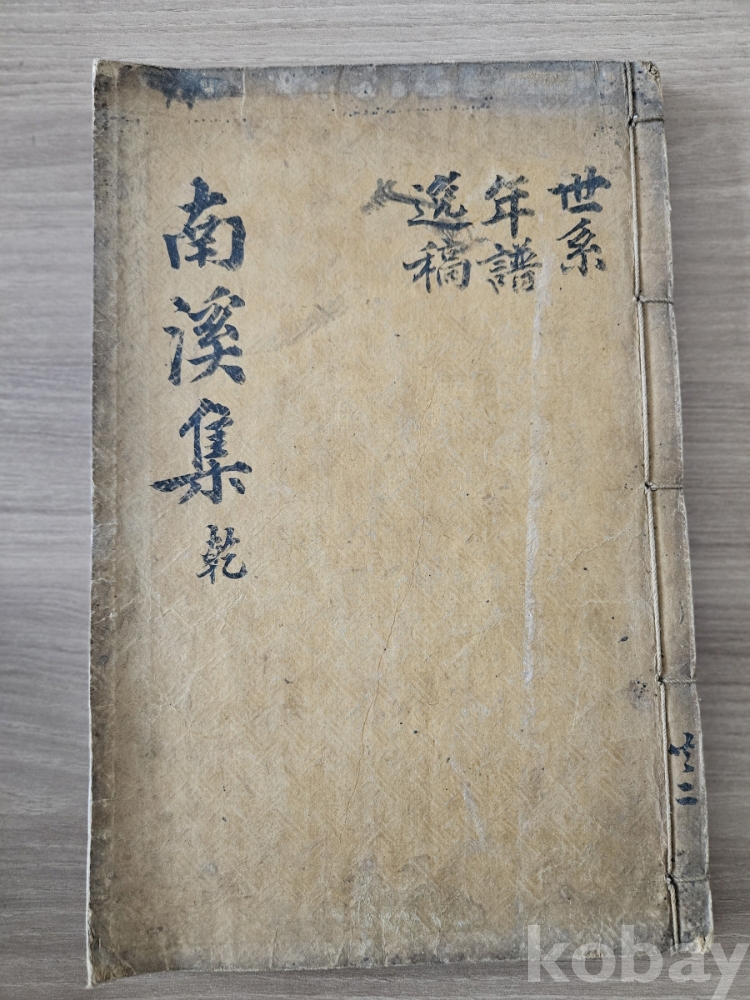 世系
年譜
逸稿
南溪集 乾
共二
kobay